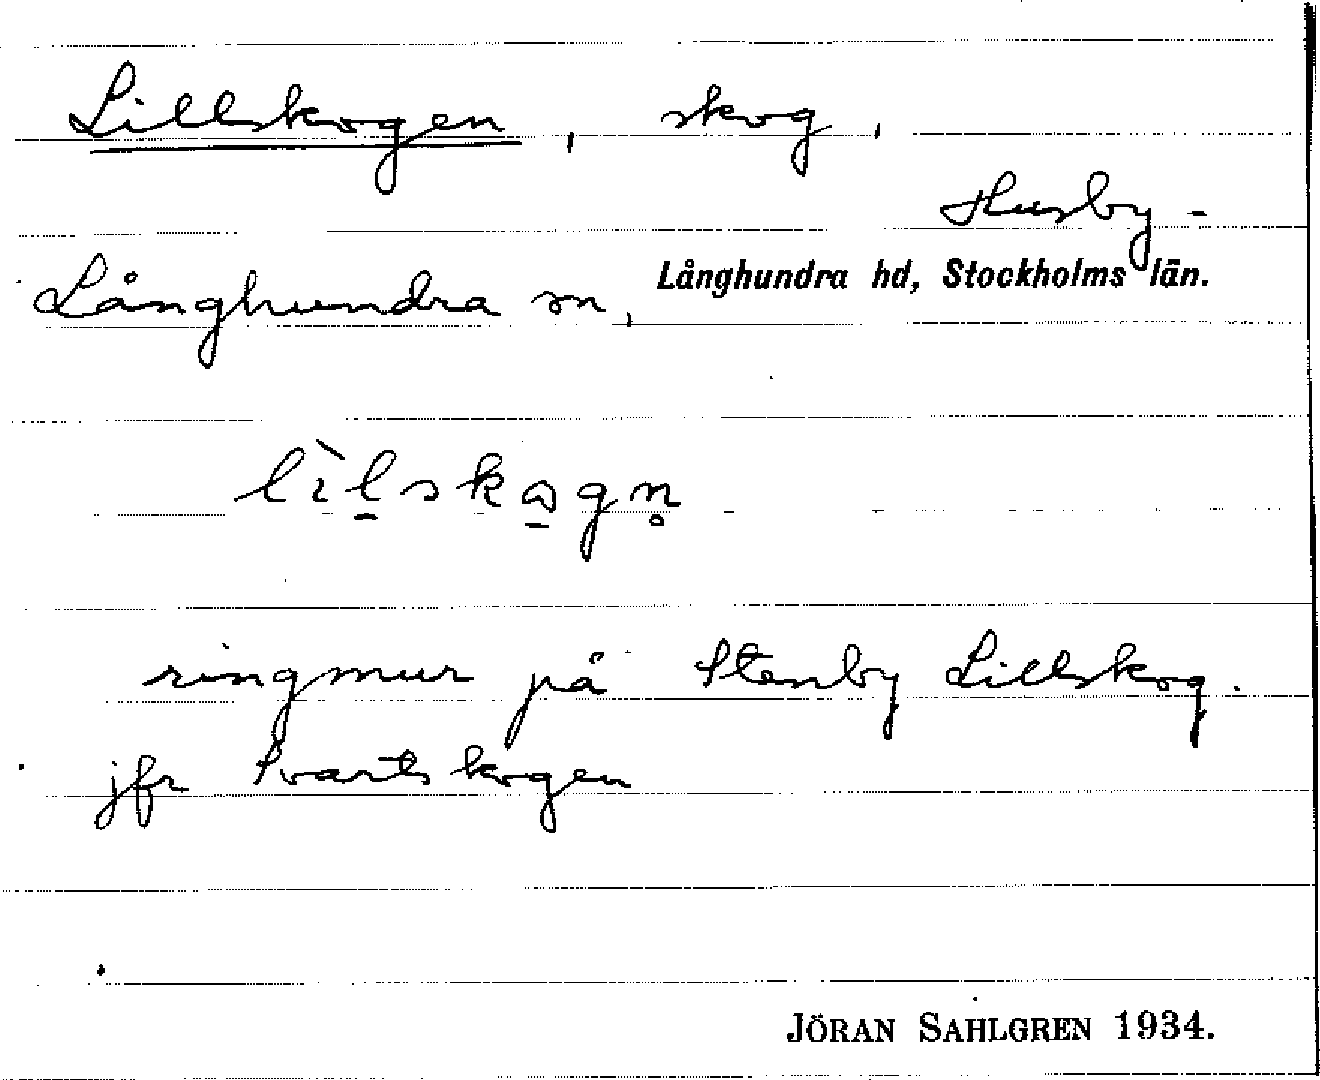 Lillskogen, skog,
Husby-
Långhundra sn, Långhundra hd, Stockholms län.
lìl̠skɷ̠gn̥
ringmur på Stenby Lillskog.
jfr Svartskogen
JÖRAN SAHLGREN 1934.